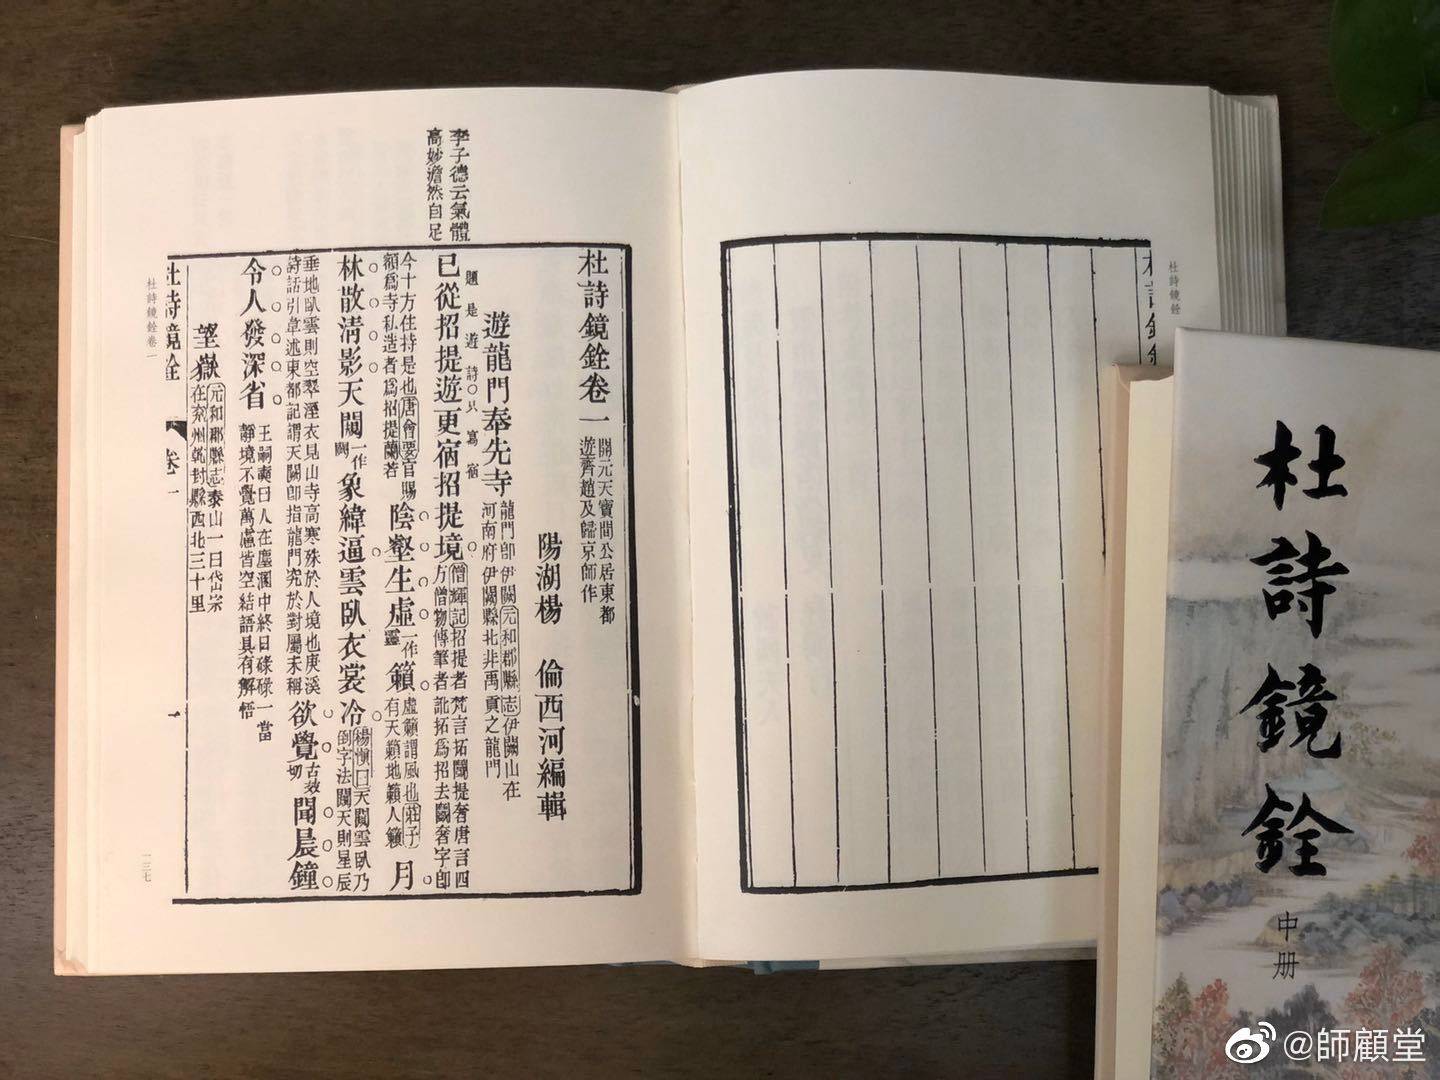 李子德云氣體
高妙澹然自足
杜詩鏡銓卷一
開元天寶間公居東都
遊齊趙及歸京師作
陽湖楊 倫西河編輯
遊龍門奉先寺
龍門卽伊闕元和郡縣志伊闕山在
河南府伊闕縣北非禹貢之龍門
題是遊詩○只寫宿
已從招提遊更宿招提境
僧輝記招提者梵言拓鬭提奢唐言四
方僧物傳筆者訛拓爲招去鬭奢字卽
今十方住持是也唐會要官賜
額爲寺私造者爲招提蘭若
陰壑生虛
一作靈
籟
虛籟謂風也莊子
有天籟地籟人籟
月
林散清影天闚
一作闕
象緯逼雲臥衣裳冷
楊慎曰天闚雲臥乃
倒字法闚天則星辰
垂地臥雲則空翠溼衣見山寺高寒殊於人境也庚溪
詩話引韋述東都記謂天闕卽指龍門究於對屬未稱
欲覺
古效切
聞晨鐘
令人發深省
王嗣奭曰人在塵溷中終日碌碌一當
靜境不覺萬慮皆空結語具有解悟
望嶽
元和郡縣志泰山一曰岱宗
在兗州乾封縣西北三十里
杜詩鏡銓
卷一
一
杜詩鏡銓卷一
一三七
杜詩鏡銓
杜詩鏡銓
中册
@師顧堂